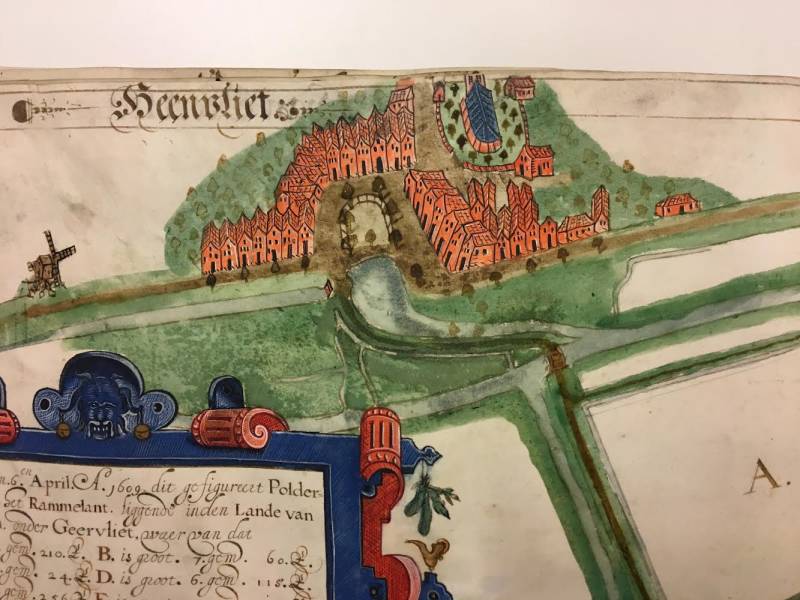 Heenvliet
6.en April. Aº. 1609. dit gefigureert Polder
het Rammelant. liggende inden Lande van
onder Geervliet, waer van dat
gem. 210. R. B. is groot. 7. gem. 60. R.
gem. 24. R. D. is groot. 6. gem. 118. R.
gem. 256. R.
A.